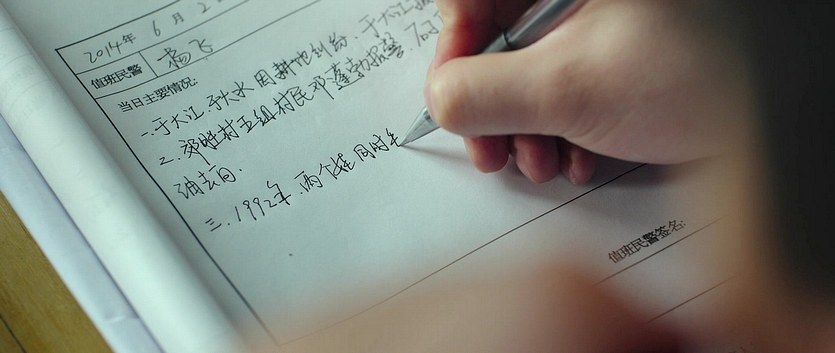 2014年 6月 2
值班民警 杨飞
当日主要情况:
一.于大江 于大水 因耕地纠纷.于大江
2.邓畈村五组村民邓蓬勃报警.
油去向.
三.1992年.两个娃同时
值班民警签名: